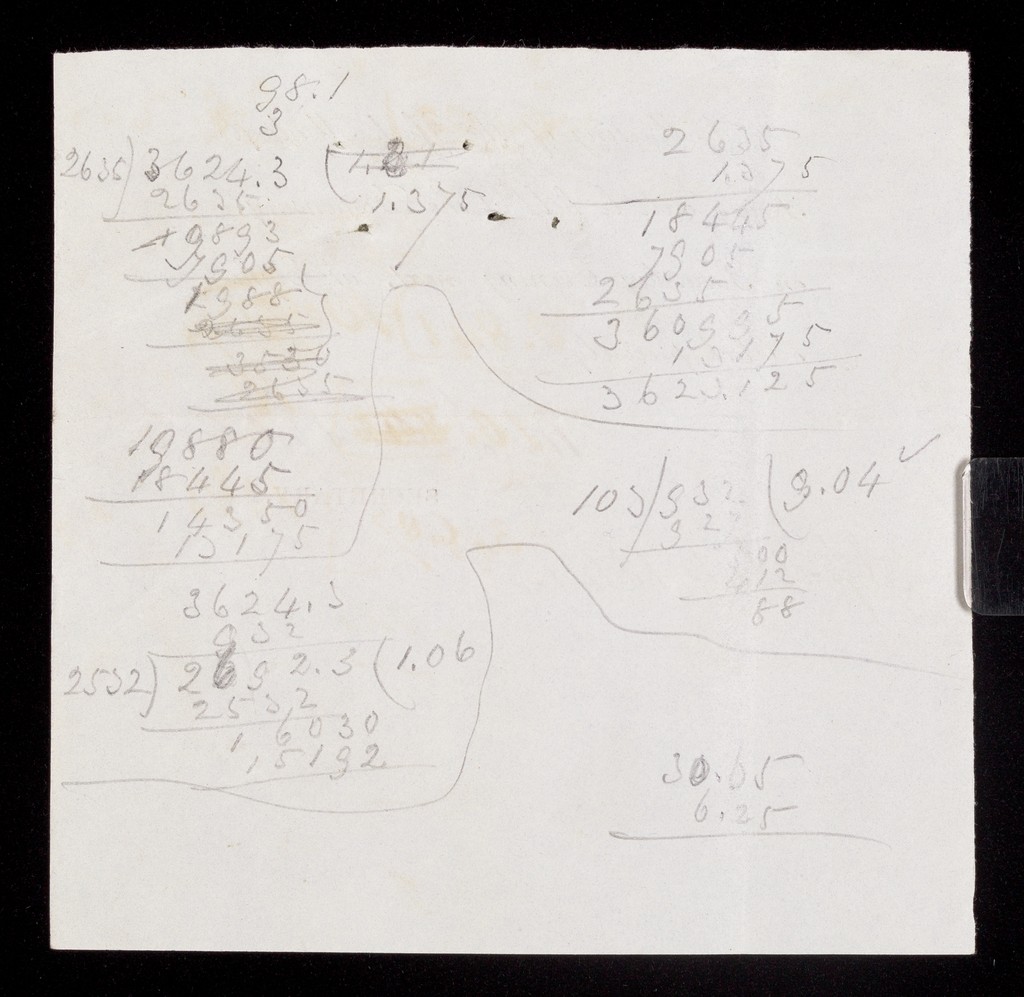 98.1
3
2635) 3624.3 (
1.375
2635
9893
7905
1988
2635
3530
2635
19880
18445
14350
13175
3624.3
932
2532) 2692.3 (1.06
2532
16030
15192
2635
1.375
18445
7905
2635
360995
13175
3623.125
103) 932 (9.04 ✓
927
00
412
88
30.05
6.25